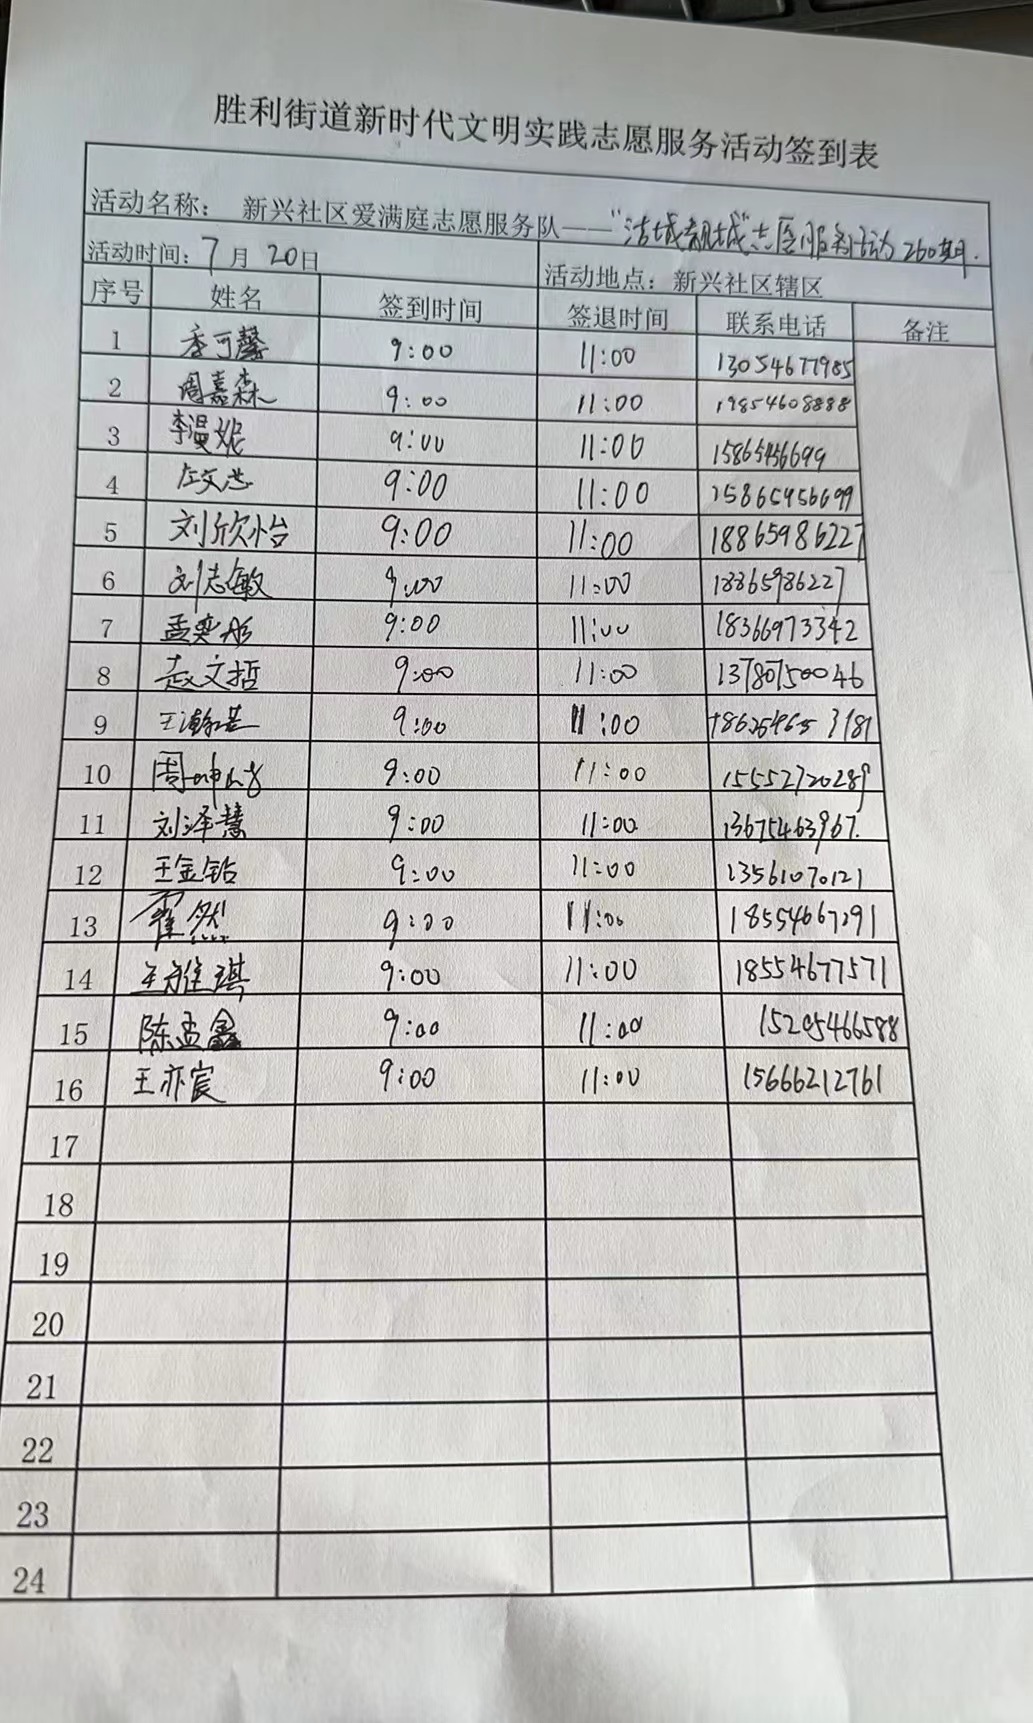 胜利街道新时代文明实践志愿服务活动签到表
活动名称： 新兴社区爱满庭志愿服务队——“洁城靓城”志愿服务活动260期.
活动时间：7月20日 活动地点：新兴社区辖区
序号 姓名 签到时间 签退时间 联系电话 备注
1 季可馨 9:00 11:00 13054677985
2 周嘉森 9:00 11:00 19854608888
3 李漫妮 9:00 11:00 15865456699
4 9:00 11:00 15865456699
5 刘欣怡 9:00 11:00 18865986227
6 刘志敏 9:00 11:00 18865986227
7 孟奕彤 9:00 11:00 18366973342
8 赵文哲 9:00 11:00 13780750046
9 9:00 11:00
10 9:00 11:00 15552720289
11 刘泽慧 9:00 11:00 13675463967.
12 王金钻 9:00 11:00 13561070121
13 霍然 9:00 11:00 18554667291
14 王雅琪 9:00 11:00 18554677571
15 陈孟鑫 9:00 11:00 15205466588
16 王亦宸 9:00 11:00 15666212761
17
18
19
20
21
22
23
24